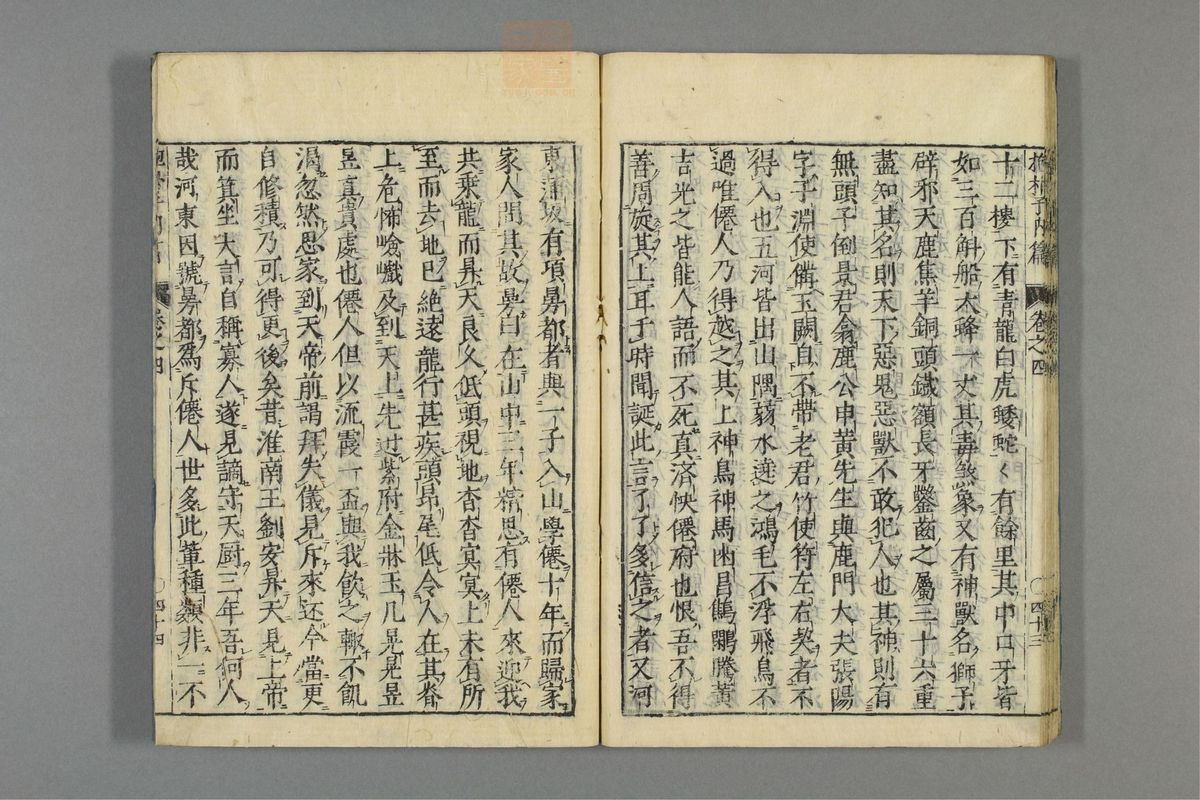 抱朴子內篇 卷之四 四十三
十二樓下有青龍白虎蟃蛇〻有餘里其中口牙皆
如三百斛船大蜂一丈其毒煞象又有神獸名獅子
辟邪天鹿焦羊銅頭鐵額長牙鑿齒之屬三十六種
盡知其名則天下惡鬼惡獸不敢犯人也其神則有
無頭子倒景君翕鹿公中黃先生與鹿門大夫張陽
字子淵使備玉闕自不帶老君竹使符左右契者不
得入也五河皆出山隅蒻水遶之鴻毛不浮飛鳥不
過唯僊人乃得越之其上神鳥神馬幽昌鷦鵬騰黃
吉光之皆能人語而不死真濟怏僊府也恨吾不得
善周旋其上耳于時聞誕此言了了多信之者又河
東蒲坂有項曼都者與一子入山學僊十年而歸家
家人問其故曼曰在山中三年精思有僊人來迎我
共乘龍而昇天良久低頭視地杳杳冥冥上未有所
至而去地巳絶遠龍行甚疾頭昂尾低令人在其脊
上危怖嶮巇及到天上先过紫府金床玉几晃晃昱
昱真貴處也僊人但以流霞一盃與我飲之輒不飢
渴忽然思家到天帝前謁拜失儀見斥來还令當更
自修積乃可得更後矣昔淮南王劉安昇天見上帝
而箕坐大言自稱寡人遂見謫守天廚三年吾何人
哉河東因號曼都爲斥僊人世多此輩種類非一不
卷之四 四十四